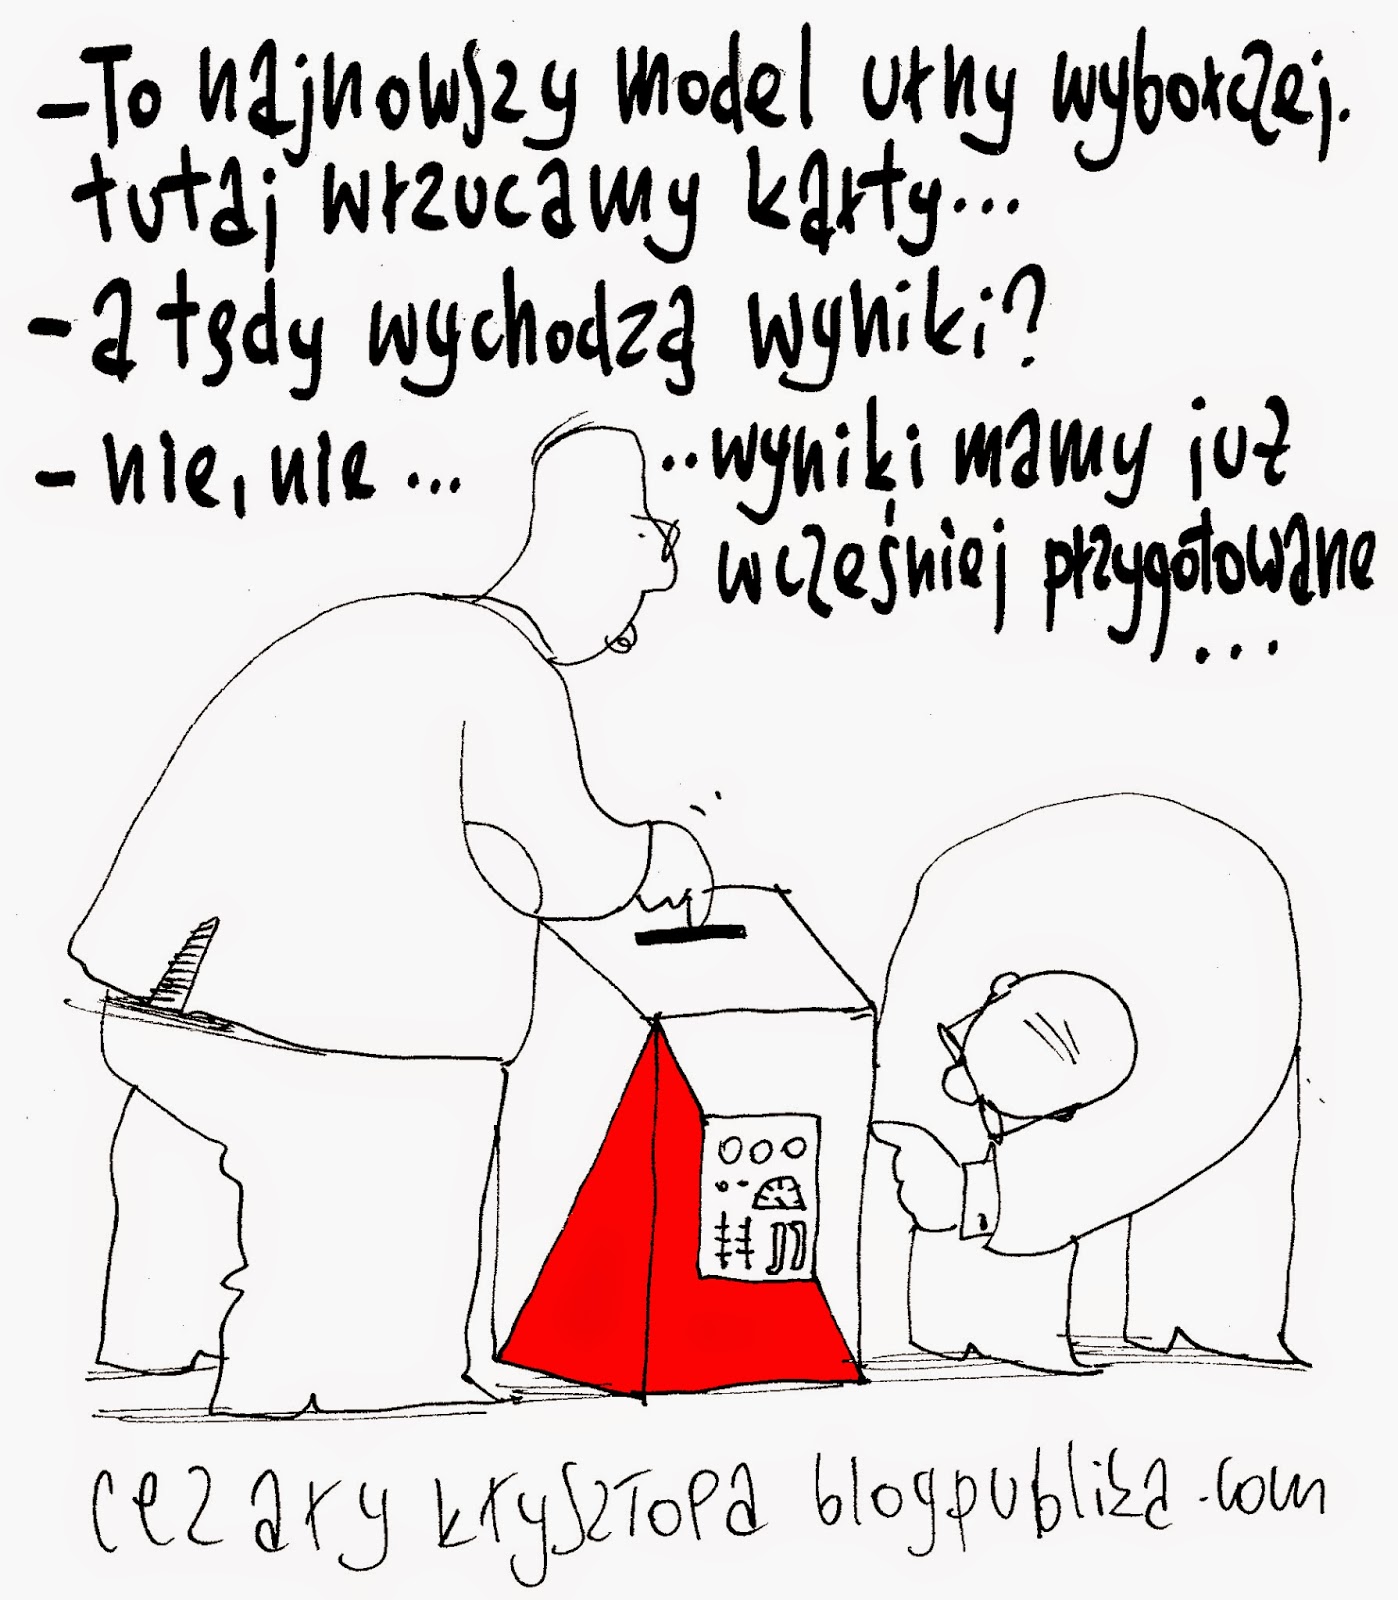 - To najnowszy model urny wyborczej.
tutaj wrzucamy karty...
- a tędy wychodzą wyniki?
- nie, nie...
..wyniki mamy już
wcześniej przygotowane
...
cezary krysztopa blogpublika.com